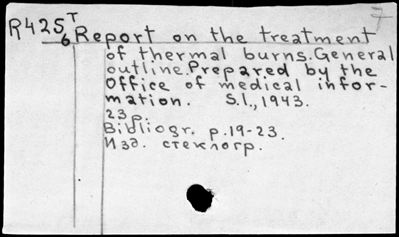 7
R425 T/6 Report on the treatment
of thermal burns. General
outline. Prepared by the
Office of medical infor-
mation. S.l., 1943.
23 p.
Bibliogr. p. 19-23.
Изд. стеклогр.